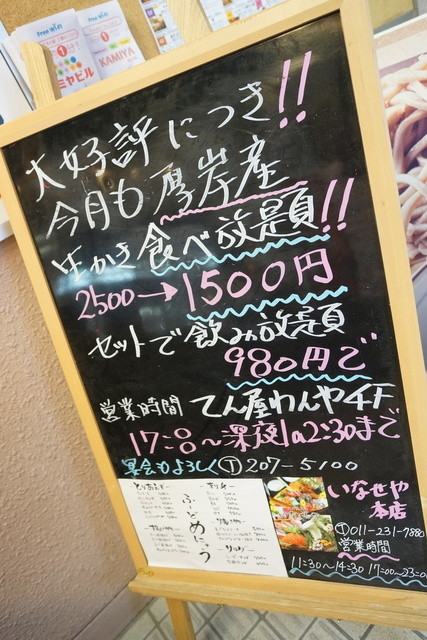 Free WiFi
Free WiFi
ミヤビル
KAMIYA
大好評につき!!
今月も厚岸産
生かき食べ放題!!
2500→1500円
セットで飲み放題
980円で
営業時間 てん屋わんやチF
17:00〜深夜1a2:30まで
宴会もよろしく①207-5100
ふーどめにゅう
いなせや
本店
①011-231-7880
営業時間
11:30〜14:30 17:00〜23:00